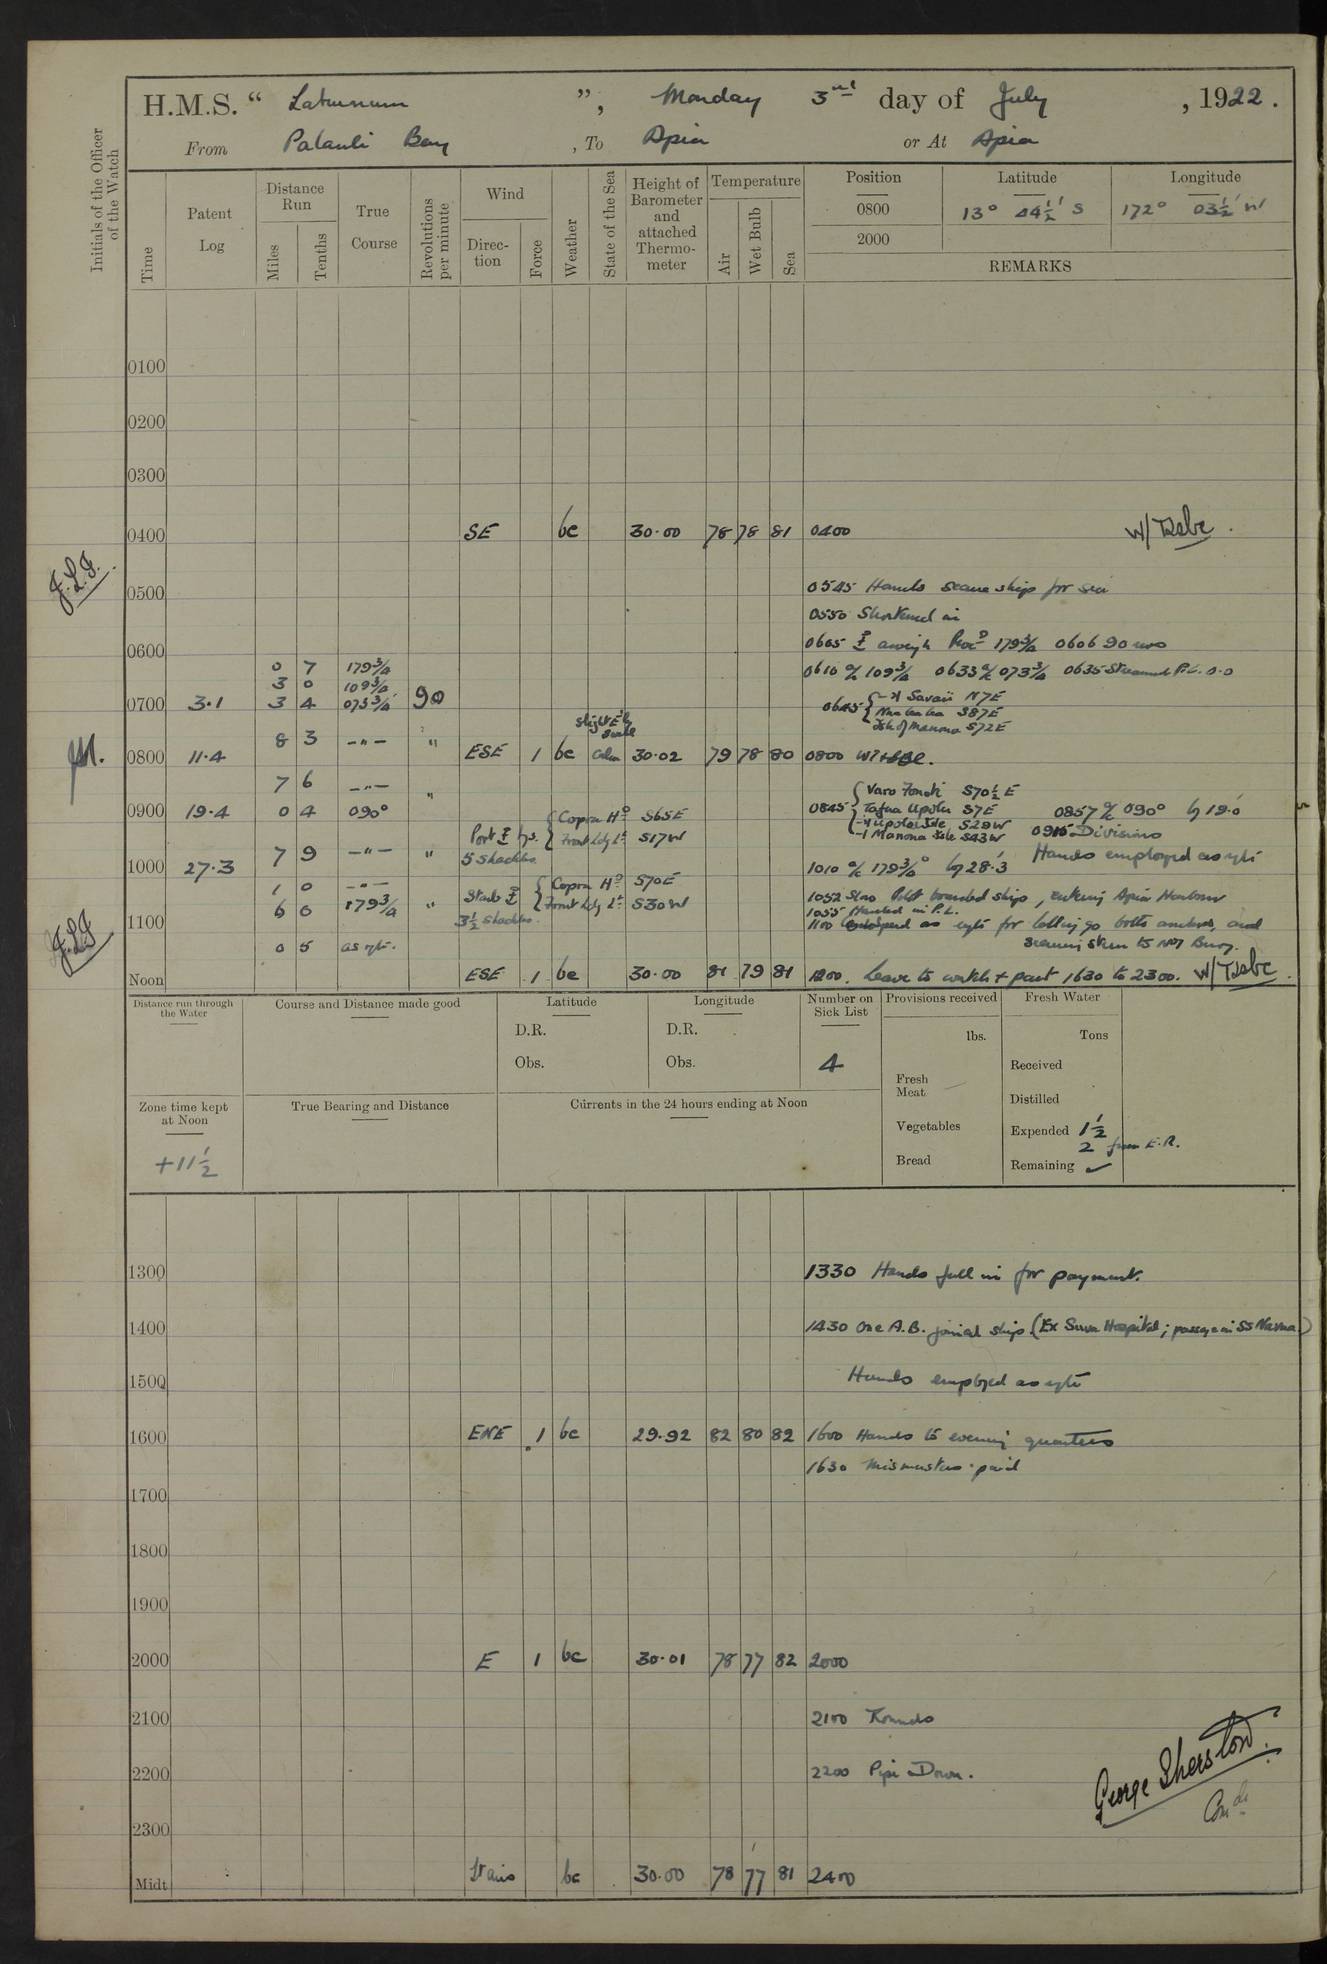 H.M.S. “ Laburnum ”, Monday 3rd day of July , 1922.
From Palauli Bay , To Apia or At Apia
Initials of the Officer of the Watch
Time
Patent Log
Distance Run
Miles
Tenths
True Course
Revolutions per minute
Wind
Direction
Force
Weather
State of the Sea
Height of Barometer and attached Thermometer
Temperature
Air
Wet Bulb
Sea
Position Latitude Longitude
0800 13° 44½' S 172° 03½' W
2000
REMARKS
0100
0200
0300
0400 SE bc 30.00 78 78 81 0400
J.L.J.
0500 0545 Hands secure ship for sea
0550 Shortened in
0600 0605 aweigh Proc 179¾ 0606 90 revs
0 7 179¾ 0610 a/c 109¾ 0633 a/c 073¾ 0635 Streamed P.L. 0.0
3 0 109¾
0700 3.1 3 4 073¾ 90 0645 Savaii N7E
S87E
Isle of Manono S72E
slight E'ly swell
8 3 —"— "
0800 11.4 ESE 1 bc calm 30.02 79 78 80 0800
7 6 —"— "
0845 S70½E
Tafua Upolu S7E
Upolu Isle S29W
Manono Isle S43W
0857 a/c 090° lg 19.0
0900 19.4 0 4 090°
0915 Divisions
Port hrs. 5 shackles Copra Ho S65E
Front Ldg Lt S17W
7 9 —"— " Hands employed as req
1000 27.3 1010 a/c 179¾° lg 28.3
1 0 —"—
Starb 3½ shackles Copra Ho S70E
Front Ldg Lt S30W
6 0 179¾ "
1052 Slow Pilot boarded ship, entering Apia Harbour
1055 Hauled in P.L.
1100 1100 as req for letting go both anchors, and
securing stern to No 1 Buoy.
0 5 as req.
J.L.J
Noon ESE 1 bc 30.00 81 79 81 1200. Leave to watch + part 1630 to 2300.
Distance run through the Water
Course and Distance made good
Latitude
D.R.
Obs.
Longitude
D.R.
Obs.
Number on Sick List
4
Provisions received
lbs.
Fresh Meat
Vegetables
Bread
Fresh Water
Tons
Received
Distilled
Expended 1½
2 from E.R.
Remaining
Zone time kept at Noon
+11½
True Bearing and Distance
Currents in the 24 hours ending at Noon
1300 1330 Hands fell in for payment.
1400 1430 One A.B. joined ship (Ex Suva Hospital; passage in SS Navua)
1500 Hands employed as req
1600 ENE 1 bc 29.92 82 80 82 1600 Hands to evening quarters
1630 Mismusters paid
1700
1800
1900
2000 E 1 bc 30.01 78 77 82 2000
2100 2100 Rounds
2200 2200 Pipe Down.
George Sherston
Comdr
2300
Midt Lt airs bc 30.00 78 77 81 2400